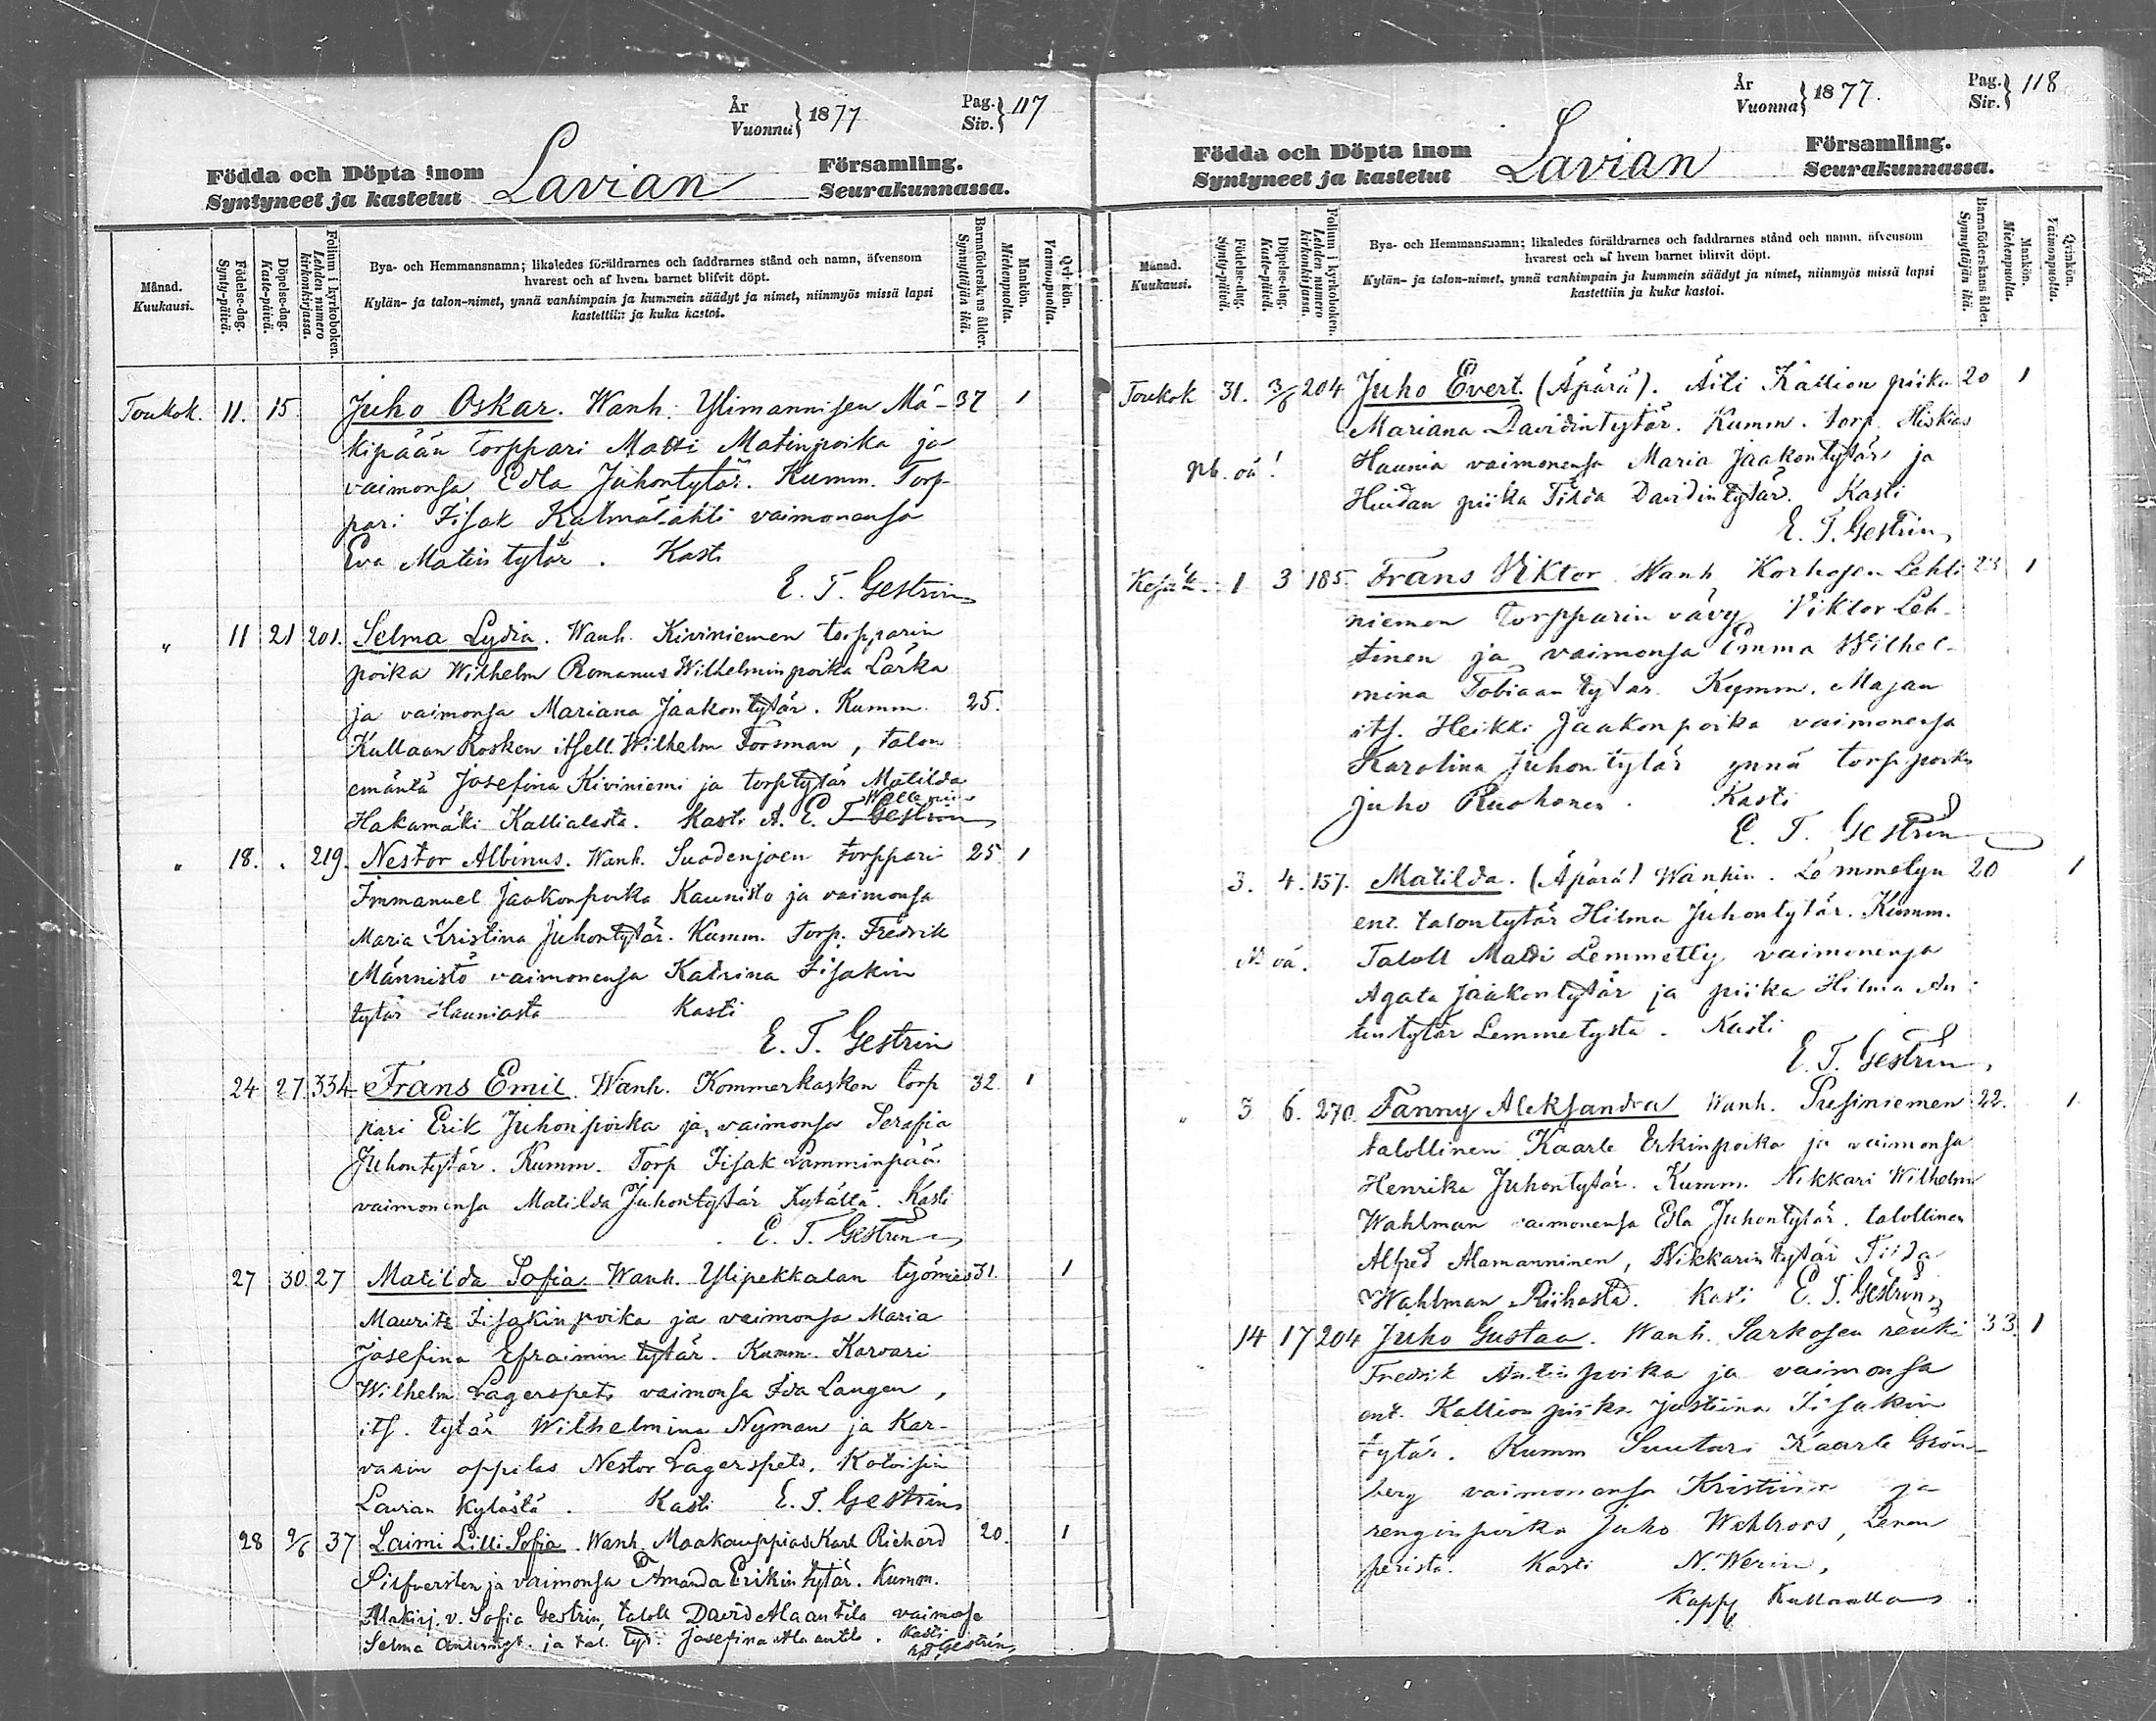 År
Vuonna} 1877
Pag.
Siv.} 117
Födda och Döpta inom
Syntyneet ja kastetut
Lavian
Församling.
Seurakunnassa.
Månad.
Kuukausi.
Födelse-dag.
Synty-päivä.
Döpelse-dag.
Kaste-päivä.
Folium i kyrkoboken.
Lehden numero kirkonkirjassa.
Bya- och Hemmansnamn; likaledes föräldrarnes och faddrarnes stånd och namn, äfvensom
hvarest och af hvem barnet blifvit döpt.
Kylän- ja talon-nimet, ynnä vanhimpain ja kummein säädyt ja nimet, niinmyös missä lapsi
kastettiin ja kuka kastoi.
Barnaföderskans ålder.
Synnyttäjän ikä.
Mankön.
Miehenpuolta.
Qvinkön.
Vaimonpuolta.
Toukok. 11. 15. Juho Oskar. Wanh. Ylimannisen Mä- 37 1
kipään torppari Matti Matinpoika ja
vaimonsa Edla Juhontytär. Kumm. Torp-
pari Iisak vaimonensa
Eva Matin tytär. Kasti
E. T. Gestrin
" 11 21 201. Selma Lydia. Wanh. Kiviniemen torpparin
poika Wilhelm Romanus Wilhelminpoika Lärka
ja vaimonsa Mariana Jaakontytär. Kumm. 25.
Kullaan Kosken itsell. Wilhelm Forsman, talon
emäntä Josefina Kiviniemi ja torptytär Matilda
Hakamäki Kallialasta. Kasti E. T. Gestrin
" 18. " 219. Nestor Albinus. Wanh. Suodenjoen torppari 25 1
Immanuel Jaakonpoika Kaunisto ja vaimonsa
Maria Kristina Juhontytär. Kumm. Torp. Fredrik
Männistö vaimonensa Katrina Iisakin
tytär Hauniasta Kasti
E. T. Gestrin
24 27 334 Frans Emil. Wanh. Kommerkosken torp 32. 1
pari Erik Juhonpoika ja vaimonsa Serafia
Juhontytär. Kumm. Torp Iisak Lamminpää
vaimonensa Matilda Juhontytär Kytältä. Kasti
E. T. Gestrin
27 30. 27 Matilda Sofia. Wanh. Ylipekkalan työmies 31. 1
Mauritz Iisakinpoika ja vaimonsa Maria
Josefina Efraimin tytär. Kumm. Karvari
Wilhelm Lagerspets vaimonsa Ida Laugen,
its. tytär Wilhelmina Nyman ja Kar-
varin oppilas Nestor Lagerspets. Kotoisin
Lavian kylästä. Kasti E. T. Gestrin
28 9/6 37 Laimi Lilli Sofia. Wanh. Maakauppias Karl Richard 20. 1
Silfversten ja vaimonsa Amanda Erikin tytär. Kumm.
Sofia Gestrin, taloll David Alaanttila vaimonsa
Selma ja tal. tyt. Josefina Alaantti. Kasti
Gestrin
År
Vuonna} 1877.
Pag.
Siv.} 118
Födda och Döpta inom
Syntyneet ja kastetut
Lavian
Församling.
Seurakunnassa.
Månad.
Kuukausi.
Födelse-dag.
Synty-päivä.
Döpelse-dag.
Kaste-päivä.
Folium i kyrkoboken.
Lehden numero kirkonkirjassa.
Bya- och Hemmansnamn; likaledes föräldrarnes och faddrarnes stånd och namn, äfvensom
hvarest och af hvem barnet blifvit döpt.
Kylän- ja talon-nimet, ynnä vanhimpain ja kummein säädyt ja nimet, niinmyös missä lapsi
kastettiin ja kuka kastoi.
Barnaföderskans ålder.
Synnyttäjän ikä.
Mankön.
Miehenpuolta.
Qvinkön.
Vaimonpuolta.
Toukok 31. 3/6 204 Juho Evert. (Äpärä). Äiti Kallion piika 20 1
Mariana Davidintytär. Kumm. torp. Hiskias
Haunia vaimonensa Maria Jaakontytär ja
Heidan piika Tilda Davidintytär. Kasti
E. T. Gestrin
Kesäk. 1 3 185. Frans Viktor. Wanh. Korhosen Lehti 23 1
niemen torpparin vävy Viktor Leh-
tinen ja vaimonsa Emma Wilhel-
mina Tobiaan tytär. Kumm. Majan
its. Heikki Jaakonpoika vaimonensa
Karolina Juhontytär ynnä torp.poika
Juho Ruohonen. Kasti
E. T. Gestrin
3. 4. 157. Matilda. (Äpärä) Wanhin. Lemmetyn 20 1
ent. talontytär Hilma Juhontytär. Kumm.
Taloll Matti Lemmetty vaimonensa
Agata Jaakontytär ja piika Hilma An-
tintytär Lemmetystä. Kasti
E. T. Gestrin
" 3 6. 270. Fanny Aleksandra Wanh. Pusiniemen 22. 1
talollinen Kaarle Erkinpoika ja vaimonsa
Henrika Juhontytär. Kumm. Nikkari Wilhelm
Wahlman vaimonensa Edla Juhontytär. talollinen
Alfred Alamanninen, Nikkarin tytär Tilda
Wahlman Riihosta. Kasti E. T. Gestrin
14 17 204 Juho Gustaa. Wanh. Sarkosen renki 33 1
Fredrik Antinpoika ja vaimonsa
ent. Kallion piika Justiina Iisakin
tytär. Kumm Suutari Kaarle Grön-
berg vaimonensa Kristiina ja
renginpoika Juho Wahlroos, Lenon
peristä. Kasti N. Werin,
Kapp Kullaalla